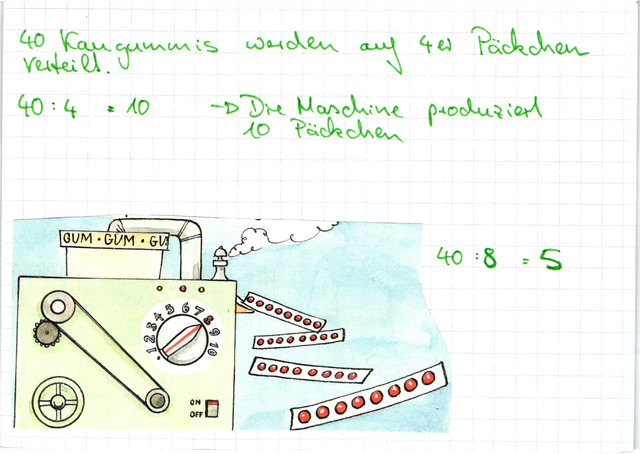 40 Kaugummis werden auf 4er Päckchen
verteilt.
40 : 4 = 10 → Die Maschine produziert
10 Päckchen
GUM · GUM · GU
40 : 8 = 5
1 2 3 4 5 6 7 8 9 10
ON
OFF